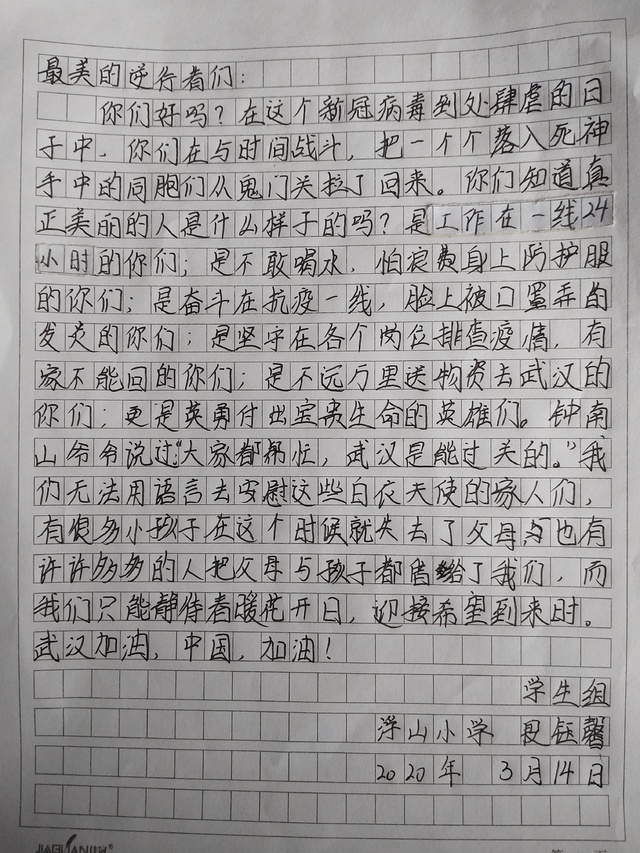 最美的逆行者们：
你们好吗？在这个新冠病毒到处肆虐的日
子中，你们在与时间战斗，把一个个落入死神
手中的同胞们从鬼门关拉了回来。你们知道真
正美丽的人是什么样子的吗？是工作在一线24
小时的你们；是不敢喝水，怕浪费身上防护服
的你们；是奋斗在抗疫一线，脸上被口罩弄的
发炎的你们；是坚守在各个岗位排查疫情，有
家不能回的你们；是不远万里送物资去武汉的
你们；更是英勇付出宝贵生命的英雄们。钟南
山爷爷说过：“大家都帮忙，武汉是能过关的。”我
们无法用语言去安慰这些白衣天使的家人们，
有很多小孩子在这个时候就失去了父母，也有
许许多多的人把父母与孩子都留给了我们，而
我们只能静待春暖花开日，迎接希望到来时。
武汉加油，中国，加油！
学生组
浮山小学 段钰馨
2020年 3月14日